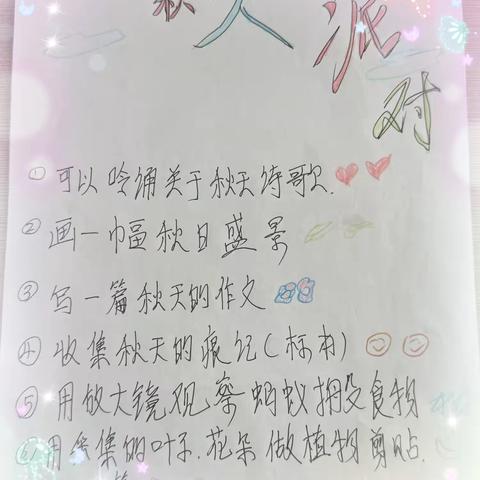 秋天派对
①可以吟诵关于秋天诗歌.
②画一幅秋日盛景
③写一篇秋天的作文
④收集秋天的痕记(标本)
⑤用放大镜观察蚂蚁搬食物
⑥用采集的叶子.花朵做植物剪贴.